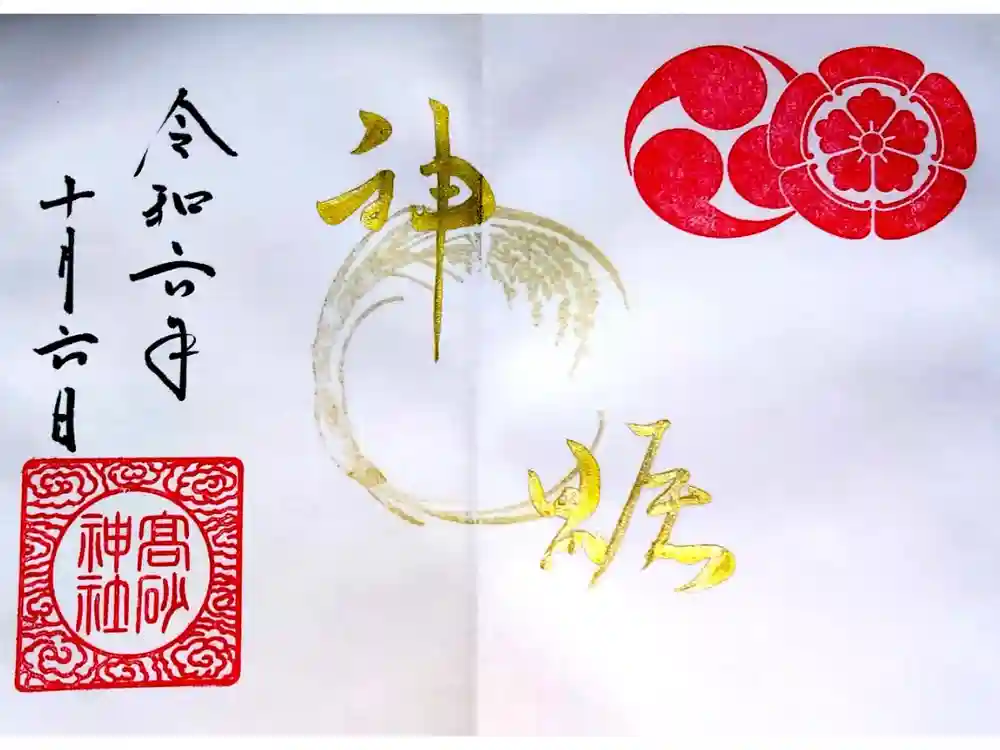 神
令和六年
十月六日
髙砂
神社